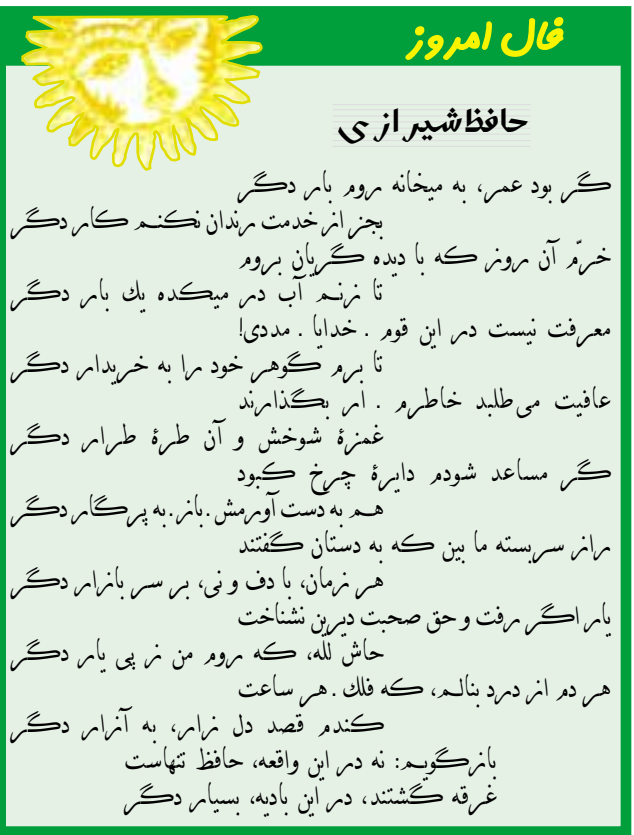 فال امروز
حافظ شیرازی
گر بود عمر، به میخانه روم بار دگر
بجز از خدمت رندان نکنم کار دگر
خرّم آن روز که با دیده گریان بروم
تا زنم آب در میکده یك بار دگر
معرفت نیست در این قوم . خدایا . مددی!
تا برم گوهر خود را به خریدار دگر
عافیت می‌طلبد خاطرم . ار بگذارند
غمزهٔ شوخش و آن طرهٔ طرار دگر
گر مساعد شودم دایرهٔ چرخ کبود
هم به دست آورمش .باز.به پرگار دگر
راز سربسته ما بین که به دستان گفتند
هر زمان، با دف و نی، بر سر بازار دگر
یار اگر رفت و حق صحبت دیرین نشناخت
حاش لله، که روم من ز پی یار دگر
هر دم از درد بنالم، که فلك .هر ساعت
کندم قصد دل زار، به آزار دگر
بازگویم: نه در این واقعه، حافظ تنهاست
غرقه گشتند، در این بادیه، بسیار دگر